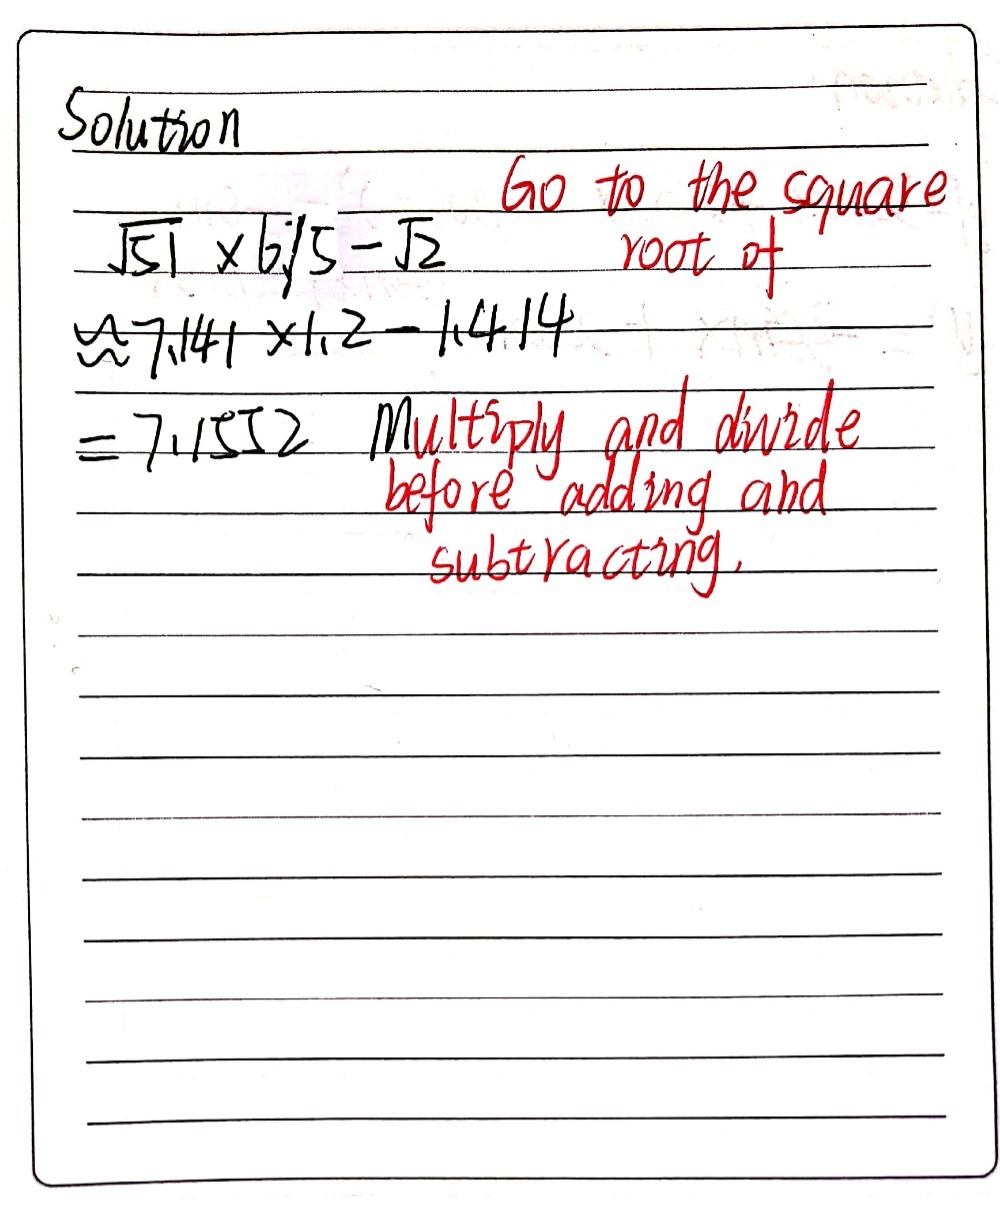 Solution
Go to the square
root of
√51 × 6/5 - √2
≈ 7.141 × 1.2 - 1.414
= 7.1552
Multiply and divide
before adding and
subtracting.